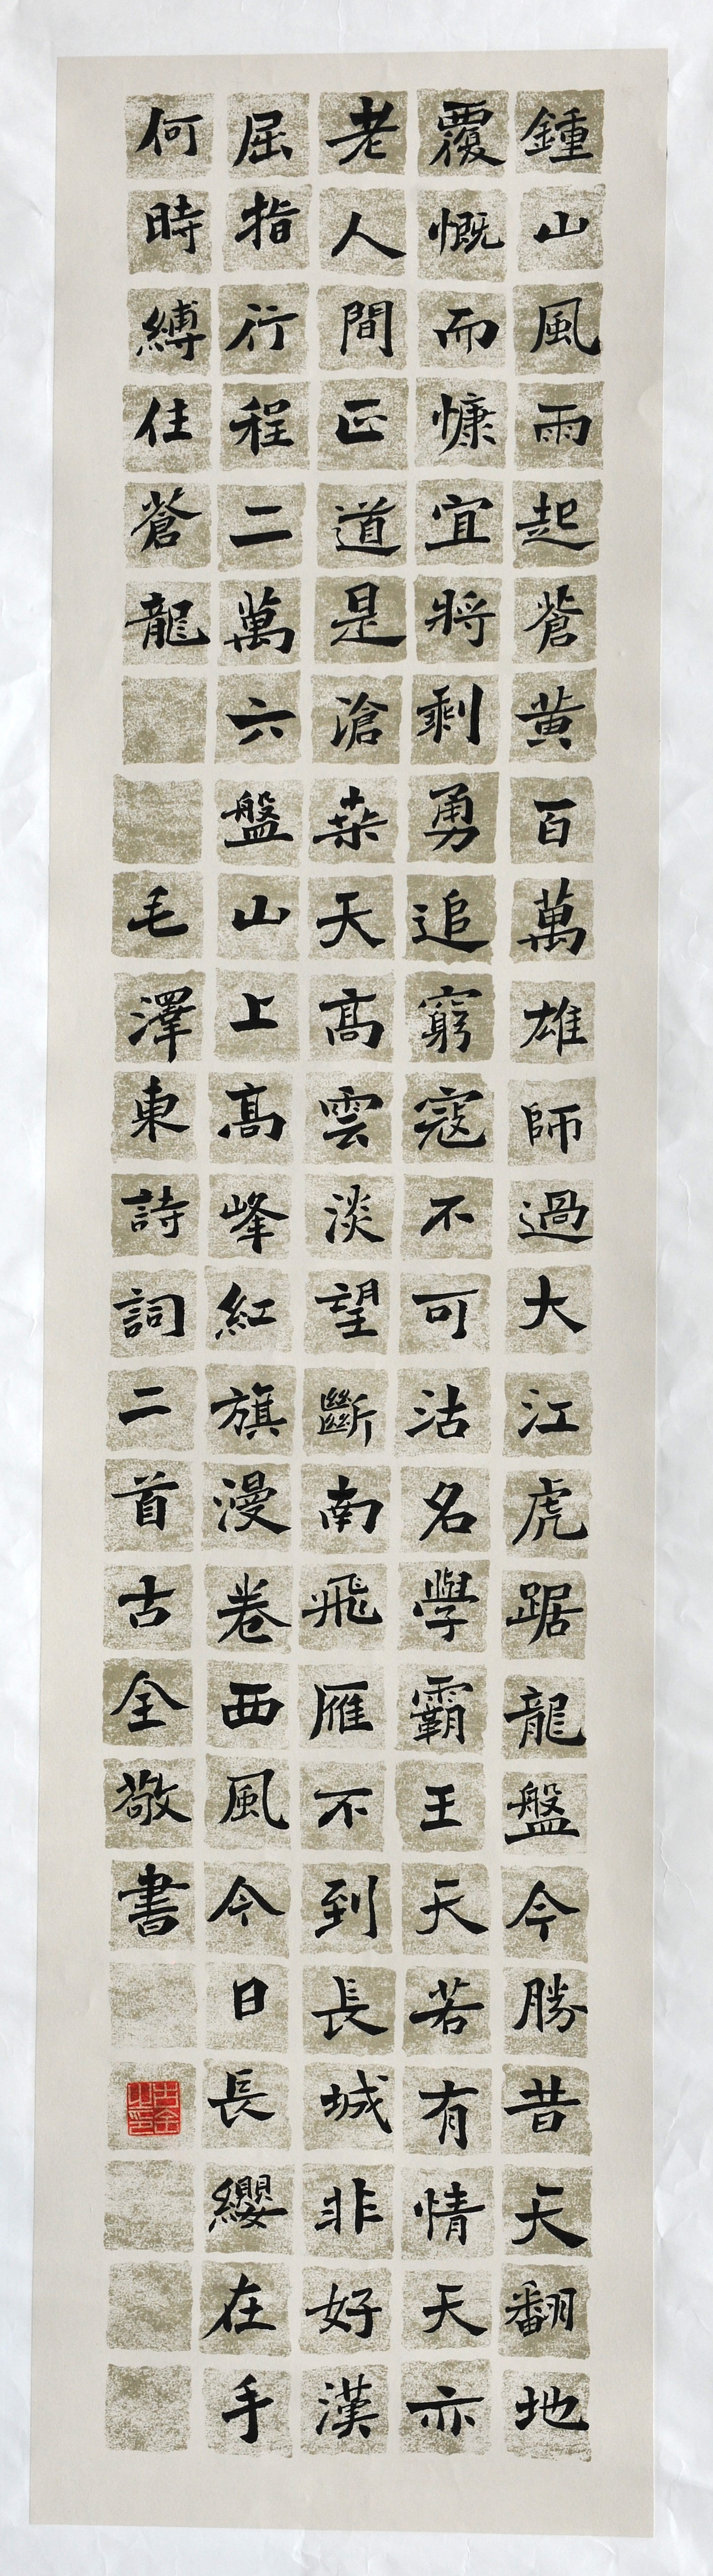 鍾山風雨起蒼黃百萬雄師過大江虎踞龍盤今勝昔天翻地
覆慨而慷宜將剩勇追窮寇不可沽名學霸王天若有情天亦
老人間正道是滄桒天高雲淡望斷南飛雁不到長城非好漢
屈指行程二萬六盤山上高峰紅旗漫卷西風今日長纓在手
何時縛住蒼龍
毛澤東詩詞二首古全敬書
古全之印